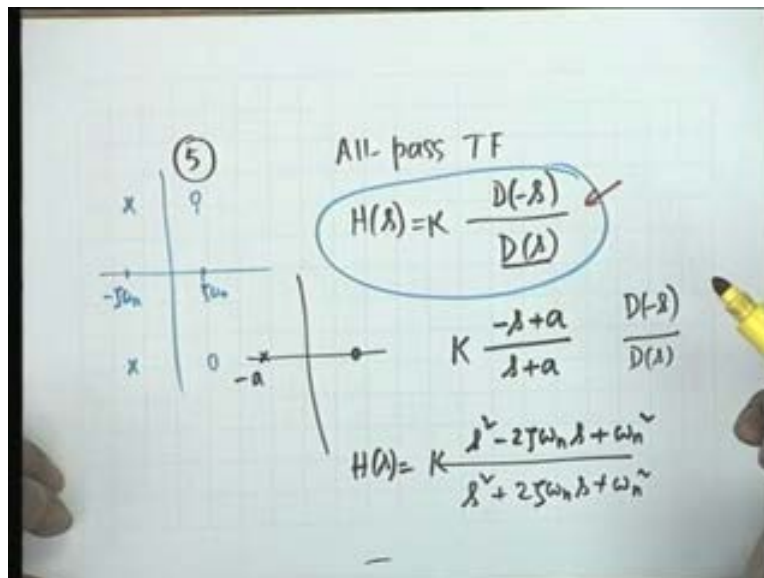 5
All-pass TF
H(s) = K D(-s) / D(s)
x o
-ζωn ζωn
x o
-a
K (-s+a) / (s+a) D(-s) / D(s)
H(s) = K (s² - 2ζωn s + ωn²) / (s² + 2ζωn s + ωn²)